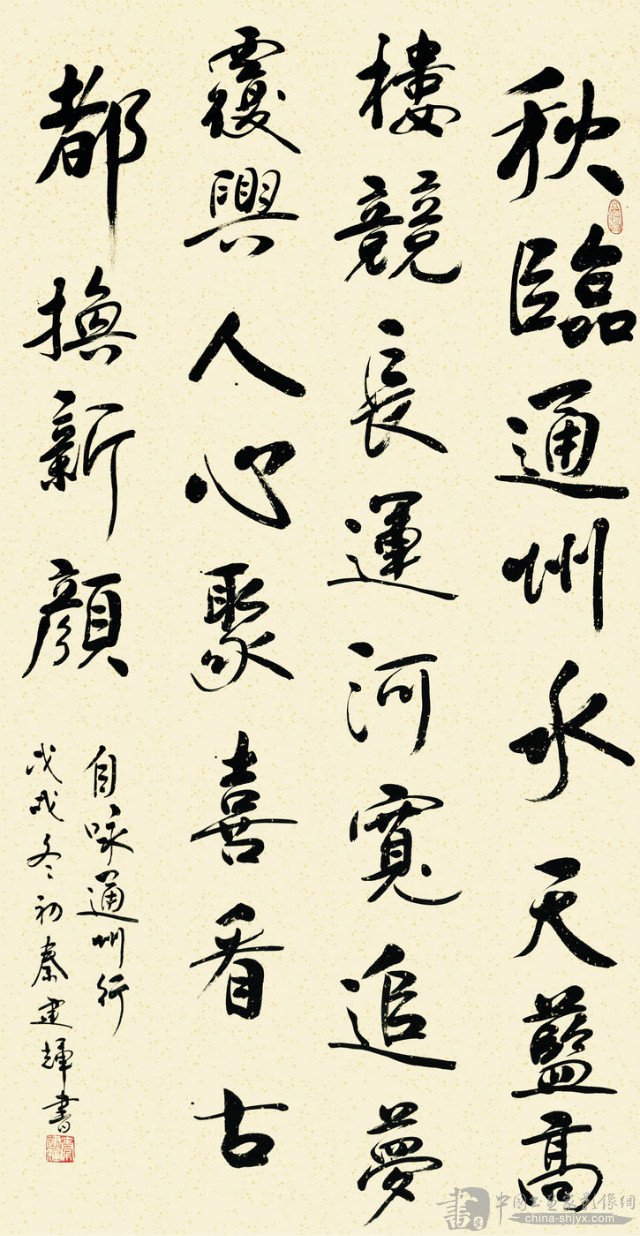 秋臨通州水天藍高
樓競長運河寬追夢
覆興人心聚喜看古
都換新顏
自咏通州行
戊戌冬初秦建輝書
中國書畫家影像網
china-shjyx.com